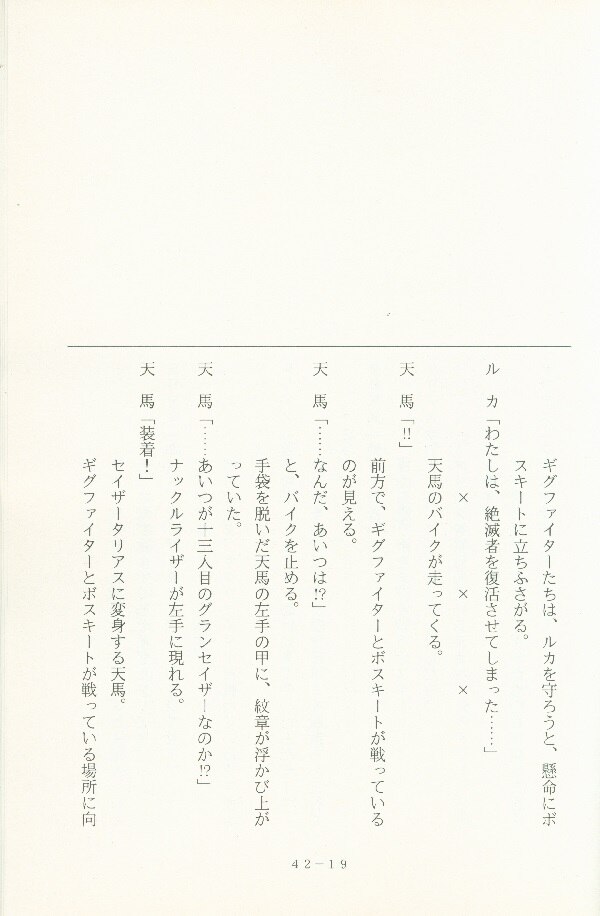 ギグファイターたちは、ルカを守ろうと、懸命にボ
スキートに立ちふさがる。
ルカ「わたしは、絶滅者を復活させてしまった……」
×　　×　　×
天馬のバイクが走ってくる。
天馬「!!」
前方で、ギグファイターとボスキートが戦っている
のが見える。
天馬「……なんだ、あいつは!?」
と、バイクを止める。
手袋を脱いだ天馬の左手の甲に、紋章が浮かび上が
っていた。
天馬「……あいつが十三人目のグランセイザーなのか!?」
ナックルライザーが左手に現れる。
天馬「装着！」
セイザータリアスに変身する天馬。
ギグファイターとボスキートが戦っている場所に向
42－19